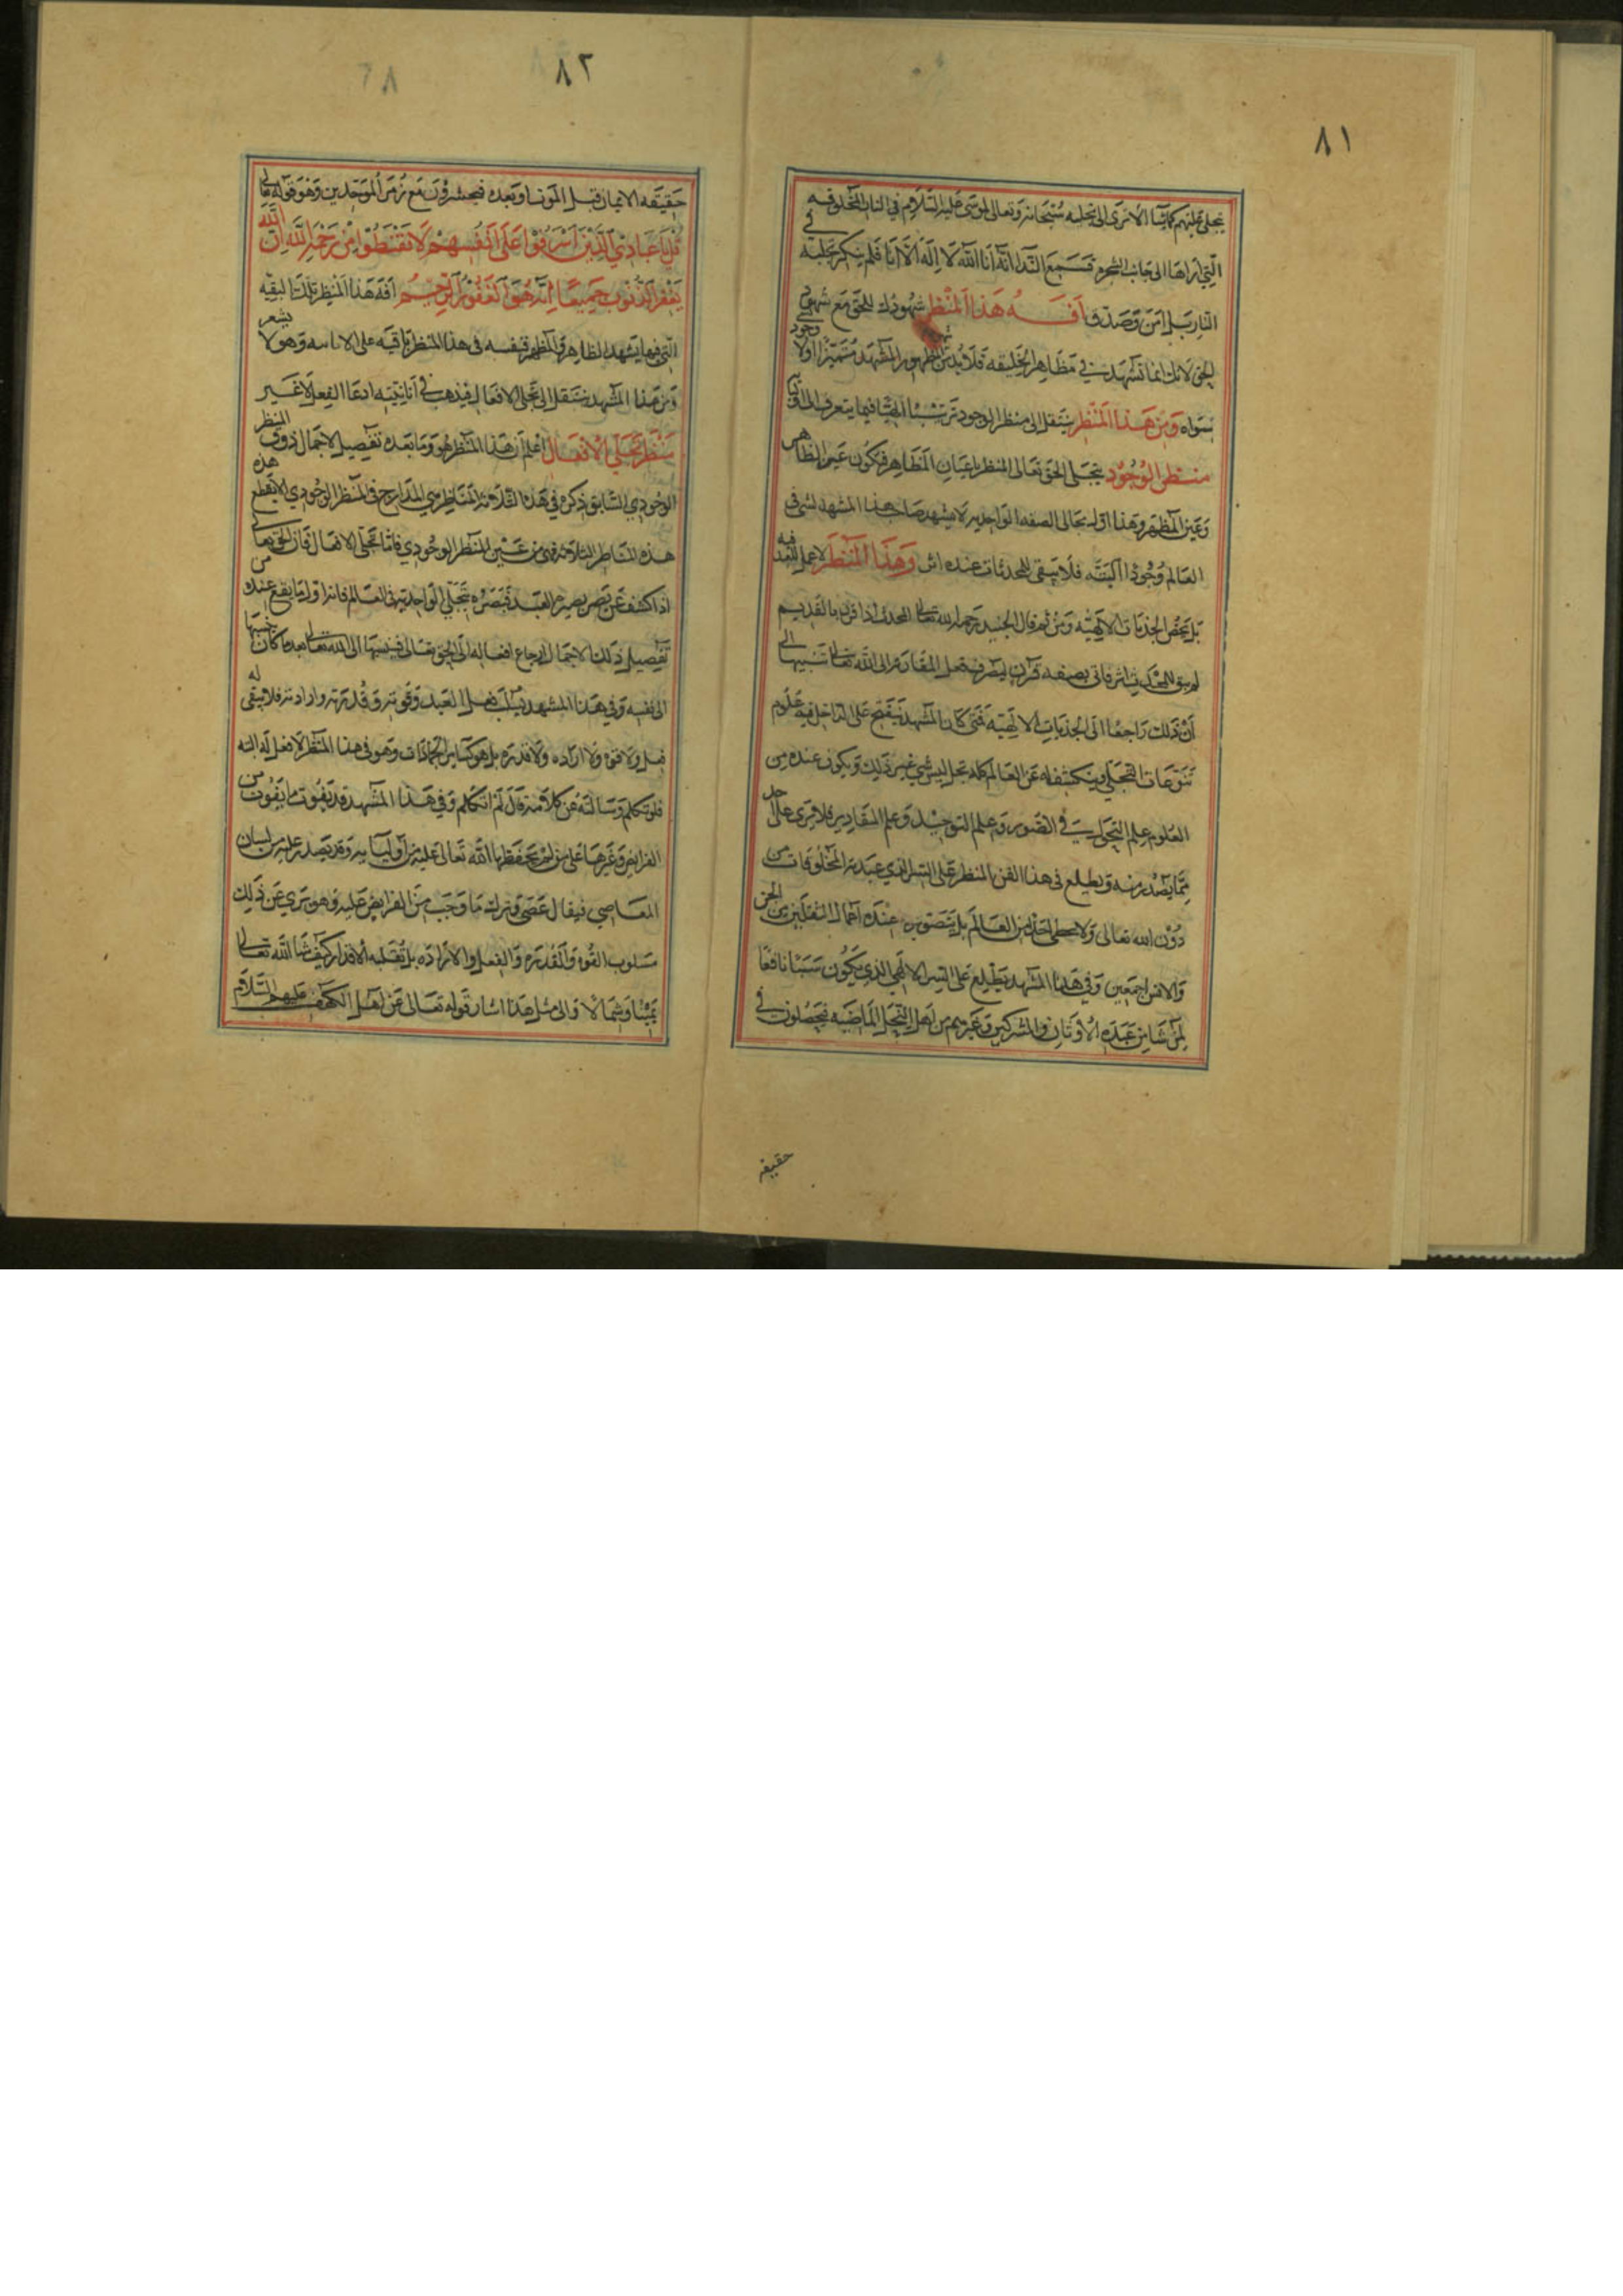 ٨١
يتجلى عليهم كما يشا الا ترى الى تجليه سبحانه وتعالى لموسى عليه السلام في النار المخلوقة
التي اراها الى جانب الشجره فسمع الندا انه انا الله لا اله الا انا فلم ينكر تجليه في
النار بل امن وصدق افه هذا المنظر شهودك للحق مع شهود
الحق لانك انما تشهده في مظاهر الخليقه فلا بد من ظهور المشهد متميزا اولا وجود
سواه ومن هذا المنظر ينتقل الى منظر الوجود
منظر الوجود يتجلى الحق تعالى المنظر باعيان المظاهر فيكون عين الظاهر
وعين المظهر وهذا اول مجالي الصفه الواحديه لا يشهد صاحب هذا المشهد لشي في
العالم وجودا البته فلا يبقى للمحدثات عنده اثر وهذا المنظر لا عمل للعبد فيه
بل بمحض الجذبات الالهيه ومن ثم قال الجنيد رحمه الله تعالى المحدث اذا قرن بالقديم
لم يبق للمحدث اثر فاتى بصفه قرن ليصرف فعل المقارنه الى الله تعالى تنبيها الى
ان ذلك راجعا الى الجذبات الالهيه فمتى كان المشهد يفتح على الداخل فيه علوم
تنوعات التجلي وينكشف له عن العالم كله تجل ليس شي غير ذلك ويكون عنده من
العلوم علم التجلي في الصور وعلم التوحيد وعلم المقادير فلا يرى على احد
مما يصدر منه ويطلع في هذا الفن المنظر على السر الذي عبدت المخلوقات من
دون الله تعالى ولا يخطي احد من العالم بل يتصور عنده اعمال الثقلين من الجن
والانس اجمعين وفي هذا المشهد يطلع على السر الالهي الذي يكون سببا نافعا
لمن شا من عبده الاوثان والمشركين وغيرهم من اهل النحل الماضيه فيحصلون في
حقيقه
٨٢
حقيقه الايمان قبل الموت او بعده فيحشرون مع زمر الموحدين وهو قوله تعالى
قل يا عبادي الذين اسرفوا على انفسهم لا تقنطوا من رحمه الله ان الله
يغفر الذنوب جميعا انه هو الغفور الرحيم افه هذا المنظر تلك البقيه
التي فيها يشهد الظاهر والمظهر فنفسه في هذا المنظر باقيه على الاناسه وهو لا يشعر
ومن هذا المشهد ينتقل الى تجلي الافعال فيذهب في انانيته ادعا الفعل لا غير
منظر تجلي الافعال اعلم ان هذا المنظر هو وما بعده تفصيل لاجمال ذوق المنظر
الوجودي السابق ذكره في هذه الثلاثه المناظر هي المدارج في المنظر الوجودي لا يقطع هذه
هذه المناظر الثلاثه فهي من عين المنظر الوجودي فاما تجلي الافعال فان الحق تعالى
اذا كشف عن بصر بصيره العبد فبصره بتجلي الواحديه في العالم فانه اول ما يقع عنده من
تفصيل ذلك الاجمال ارجاع افعاله الى الحق تعالى فينسبها الى الله تعالى بعد ما كان ينسبها
الى نفسه وفي هذا المشهد يسلب فعل العبد وقوته وقدرته وارادته فلا يبقى له
فعل ولا قوه ولا اراده ولا قدره بل هو كساير الجمادات وهو في هذا المنظر لا فعل له البته
فلو تكلم وسالته عن كلامه قال لم اتكلم وفي هذا المشهد قد يفوت ما يفوت من
الفرايض وغيرها على من لم يحفظه الله تعالى عليه من اوليايه وقد يصدر عليه من لسان
المعاصي فيقال عصى وترك ما وجب من الفرايض عليه وهو بري عن ذلك
مسلوب القوه والقدره والفعل والاراده بل تقلبه الاقدار كيف شا الله تعالى
يمينا وشمالا والى مثل هذا اشار قوله تعالى عن اهل الكهف عليهم السلام